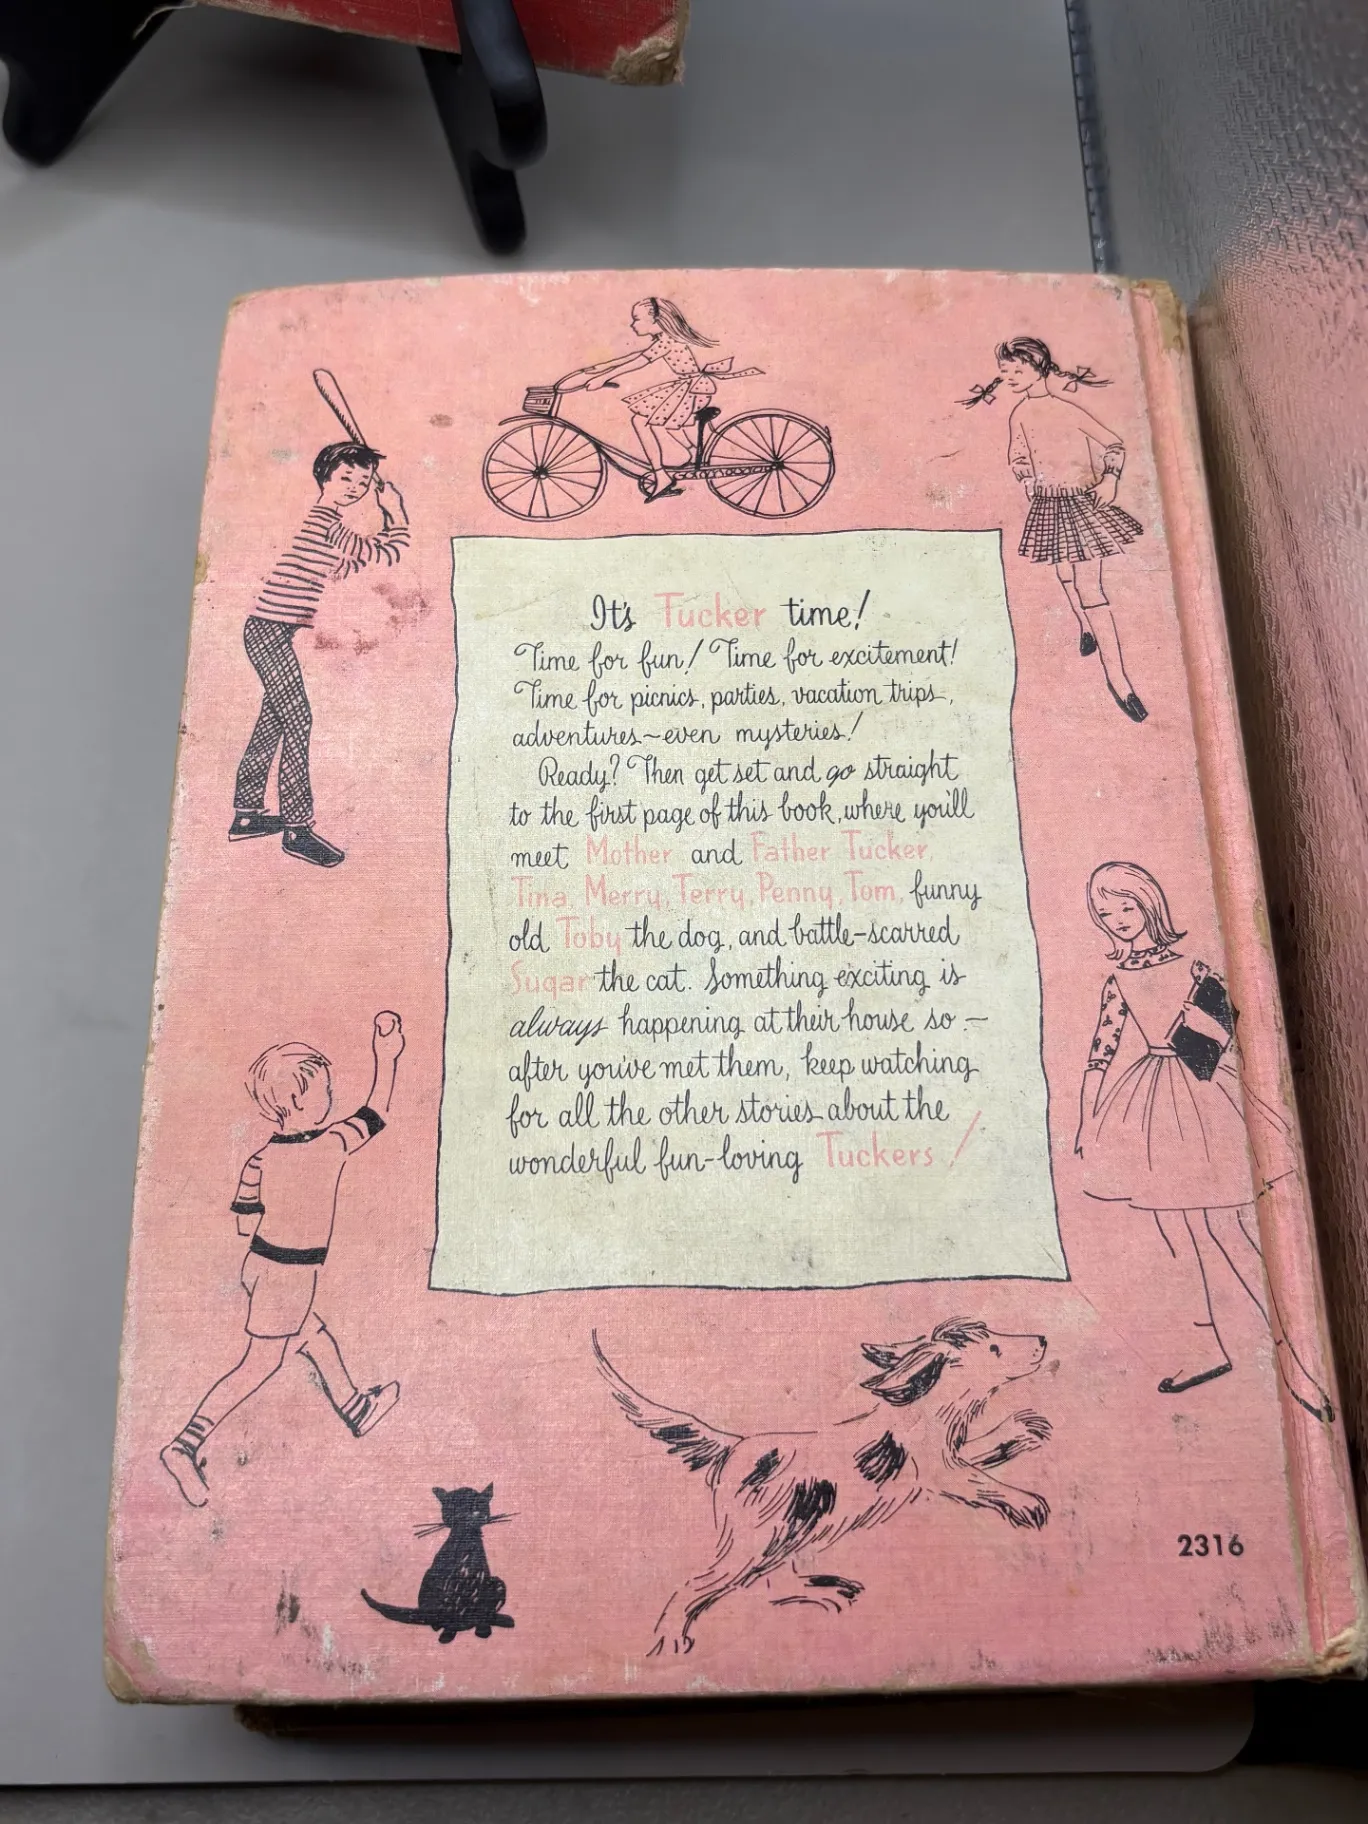 It's Tucker time!
Time for fun! Time for excitement!
Time for picnics, parties, vacation trips,
adventures~even mysteries!
Ready? Then get set and go straight
to the first page of this book, where you'll
meet Mother and Father Tucker,
Tina, Merry, Terry, Penny, Tom, funny
old Toby the dog, and battle-scarred
Sugar the cat. Something exciting is
always happening at their house so —
after you've met them, keep watching
for all the other stories about the
wonderful fun-loving Tuckers!
2316